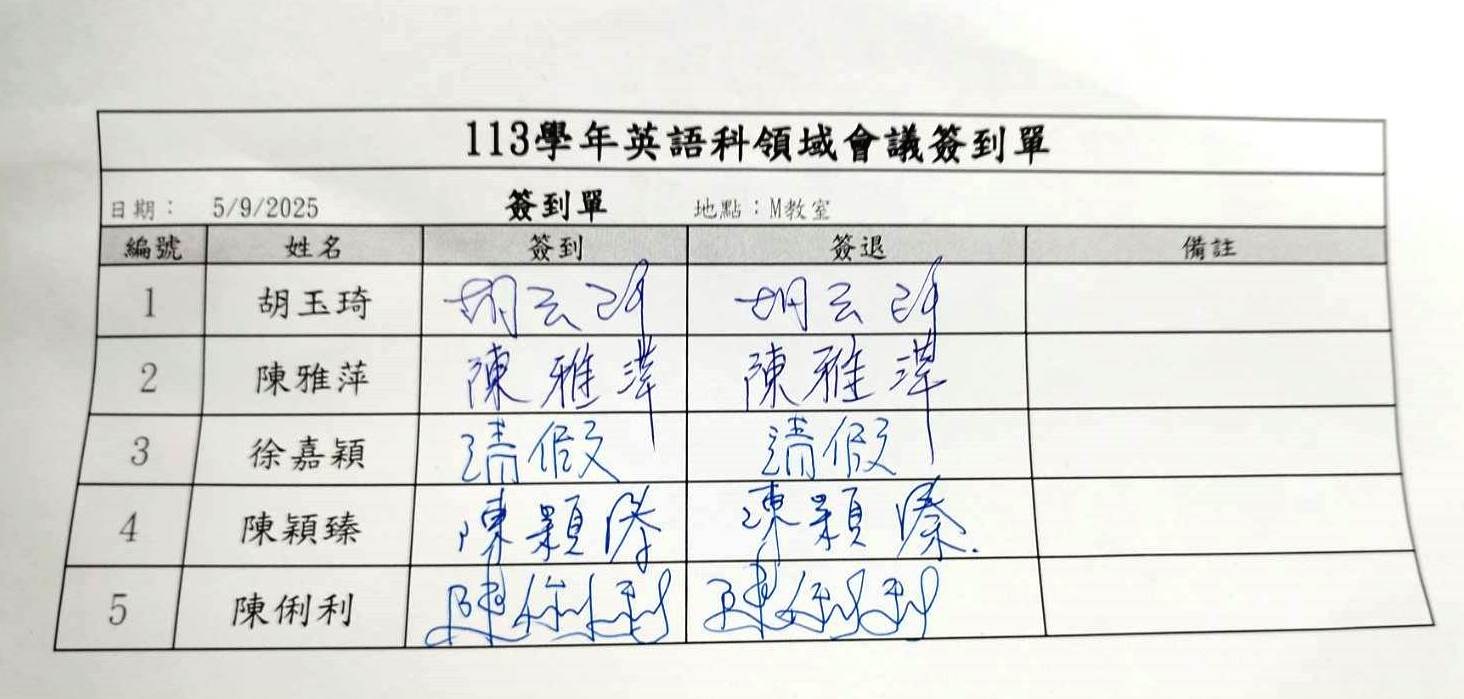 113學年英語科領域會議簽到單
日期： 5/9/2025 簽到單 地點：M教室
編號 姓名 簽到 簽退 備註
1 胡玉琦 胡玉琦 胡玉琦
2 陳雅萍 陳雅萍 陳雅萍
3 徐嘉穎 請假 請假
4 陳穎臻 陳穎臻 陳穎臻
5 陳俐利 陳俐利 陳俐利